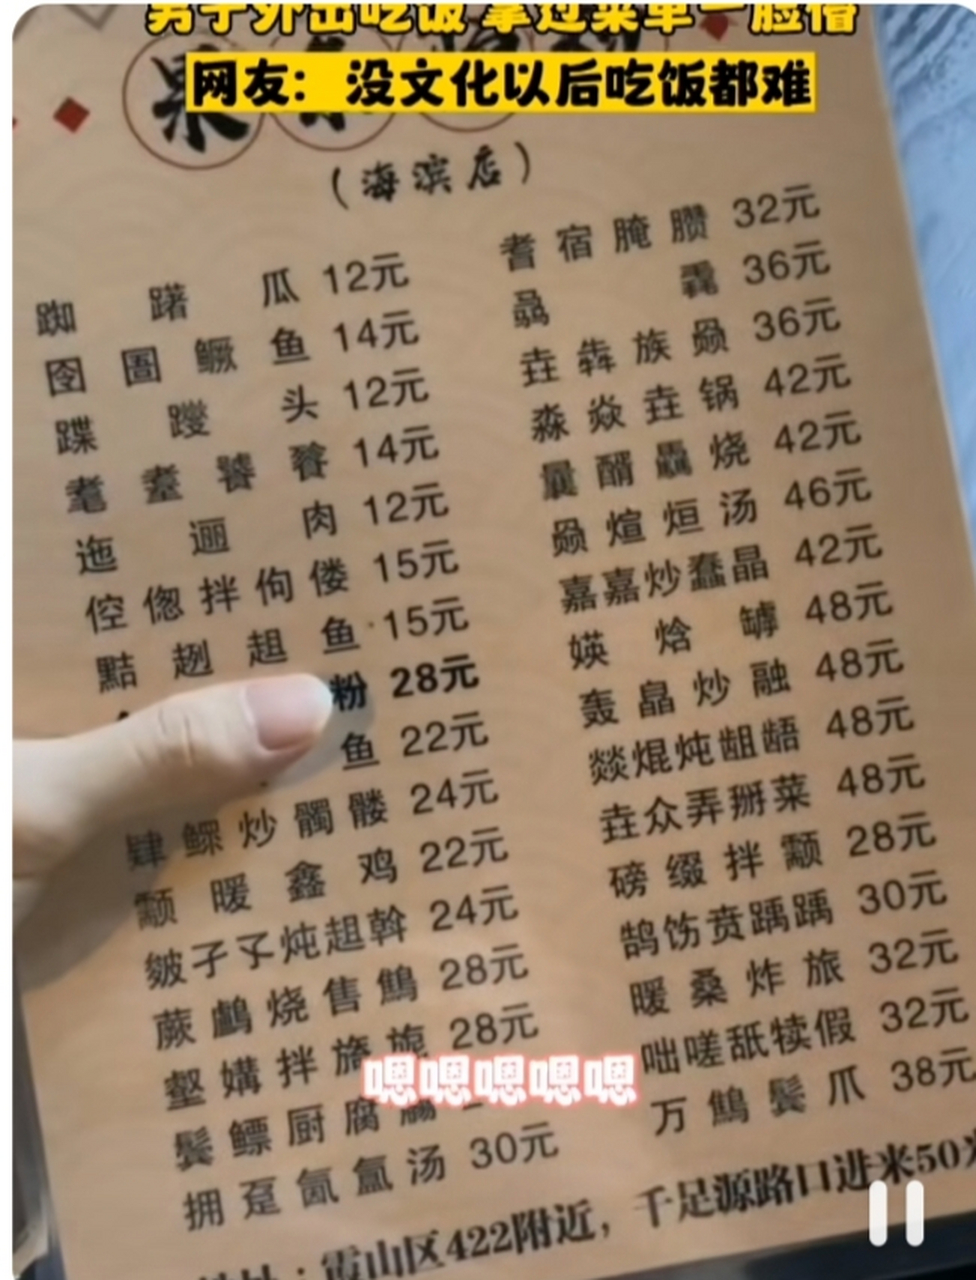 男子外出吃饭 拿过菜单一脸懵
网友：没文化以后吃饭都难
（海滨店）
踟 躇 瓜 12元
囹 圄 鳜 鱼 14元
蹀 躞 头 12元
耄 耋 饕 餮 14元
迤 逦 肉 12元
倥 偬 拌 佝 偻 15元
黠 趔 趄 鱼 15元
粉 28元
鱼 22元
肆 鳏 炒 髑 髅 24元
颣 暖 鑫 鸡 22元
皴孑孓炖趄斡 24元
蕨 鸕 烧 售 鷍 28元
壑 媾 拌 旖 旎 28元
鬓 鳔 厨 腐
拥 趸 氤 氲 汤 30元
耆 宿 腌 臜 32元
骉 毳 36元
垚 犇 族 赑 36元
淼 焱 垚 锅 42元
曩 醑 矗 烧 42元
赑 煊 烜 汤 46元
嘉嘉炒蠢晶 42元
媖 焓 罅 48元
轰 皛 炒 融 48元
燚焜炖龃龉 48元
垚众弄掰菜 48元
磅 缀 拌 颣 28元
鹄饬贲踽踽 30元
暖 桑 炸 旅 32元
咄嗟舐犊假 32元
万 鷍 鬓 爪 38元
嗯嗯嗯嗯嗯
霞山区422附近，千足源路口进来50米